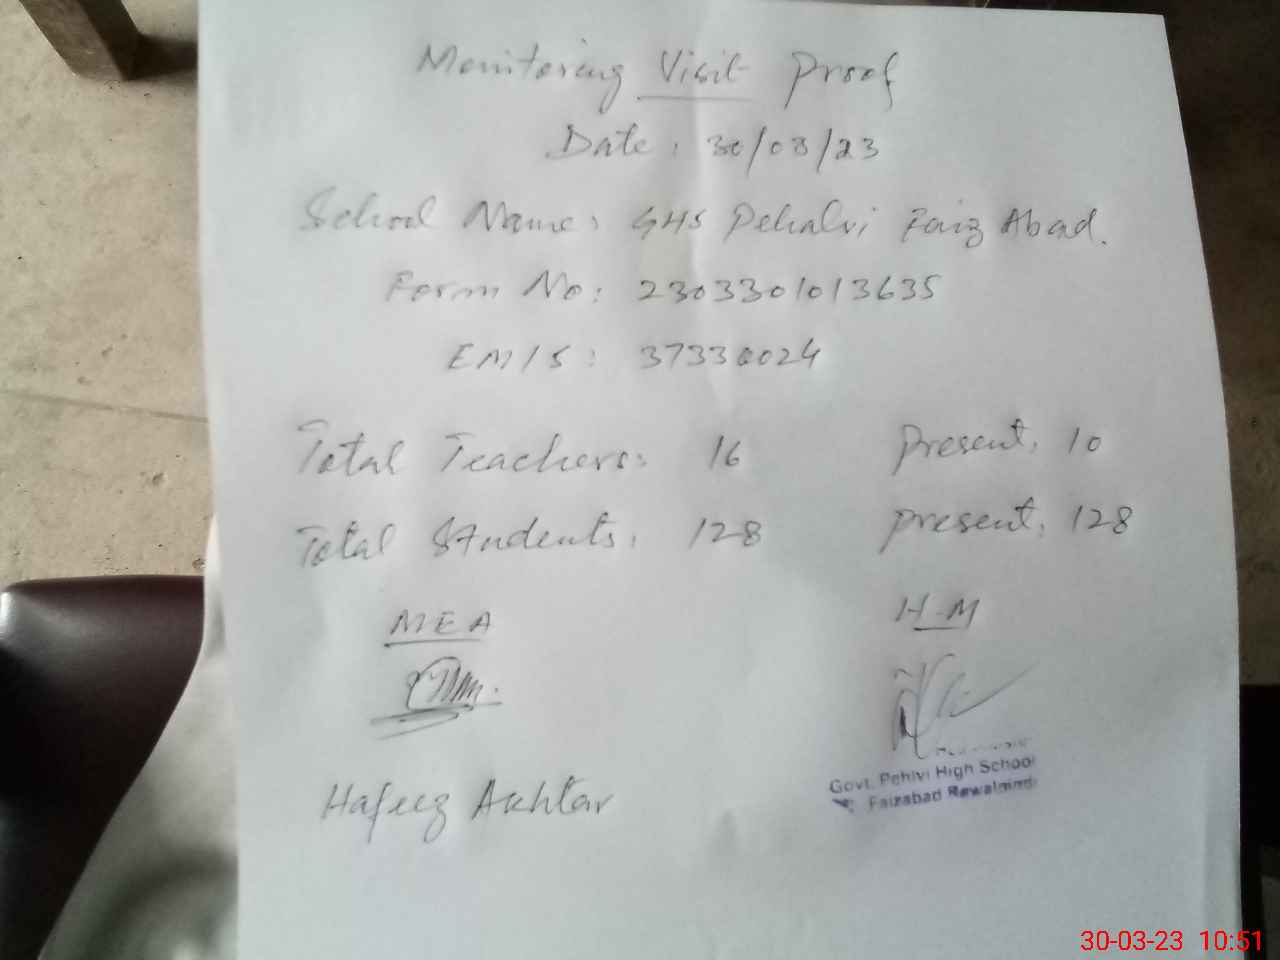 Monitoring Visit Proof
Date: 30/03/23
School Name: GHS Pehalvi Faiz Abad.
Form No: 2303301013635
EMIS: 37330024
Total Teachers: 16 Present: 10
Total Students: 128 Present: 128
MEA H.M
Govt. Pehlvi High School
Faizabad Rawalpindi
Hafeez Akhtar
30-03-23 10:51